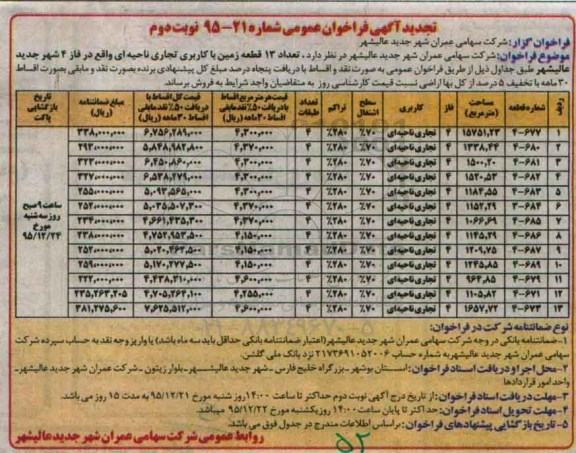 تجدید آگهی فراخوان عمومی شماره ۲۱-۹۵ نوبت دوم
فراخوان گزار: شرکت سهامی عمران شهر جدید عالیشهر
موضوع فراخوان: شرکت سهامی عمران شهر جدید عالیشهر در نظر دارد، تعداد ۱۳ قطعه زمین با کاربری تجاری ناحیه ای واقع در فاز ۴ شهر جدید
عالیشهر طبق جداول ذیل از طریق فراخوان عمومی به صورت نقد و اقساط با دریافت پنجاه درصد مبلغ کل پیشنهادی برنده بصورت نقد و مابقی بصورت اقساط
۳۰ ماهه با تخفیف ۵ درصد از کل بها اراضی نسبت قیمت کارشناسی روز به متقاضیان واجد شرایط به فروش برساند.
ردیف شماره قطعه مساحت (مترمربع) فاز کاربری سطح اشغال تراکم تعداد طبقات قیمت هر مترمربع اقساط با دریافت ۵۰٪ نقد مابقی اقساط ۳۰ ماهه (ریال) قیمت کل اقساط با دریافت ۵۰٪ نقد مابقی اقساط ۳۰ ماهه (ریال) مبلغ ضمانتنامه (ریال) تاریخ بازگشایی پاکت
۱ ۴-۶۷۷ ۱۵۷۱٫۲۳ ۴ تجاری ناحیه ای ٪۷۰ ٪۲۸۰ ۴ ۴,۳۰۰,۰۰۰ ۶,۷۵۶,۲۸۹,۰۰۰ ۳۳۸,۰۰۰,۰۰۰
۲ ۴-۶۸۰ ۱۳۳۸٫۴۴ ۴ تجاری ناحیه ای ٪۷۰ ٪۲۸۰ ۴ ۴,۳۷۰,۰۰۰ ۵,۸۴۸,۹۸۲,۸۰۰ ۲۹۳,۰۰۰,۰۰۰
۳ ۴-۶۸۱ ۱۵۰۰٫۲۰ ۴ تجاری ناحیه ای ٪۷۰ ٪۲۸۰ ۴ ۴,۳۰۰,۰۰۰ ۶,۴۵۰,۸۶۰,۰۰۰ ۳۲۳,۰۰۰,۰۰۰
۴ ۴-۶۸۲ ۱۵۲۰٫۵۳ ۴ تجاری ناحیه ای ٪۷۰ ٪۲۸۰ ۴ ۴,۳۰۰,۰۰۰ ۶,۵۳۸,۲۷۹,۰۰۰ ۳۲۷,۰۰۰,۰۰۰
۵ ۴-۶۸۳ ۱۱۸۴٫۵۵ ۴ تجاری ناحیه ای ٪۷۰ ٪۲۸۰ ۴ ۴,۳۰۰,۰۰۰ ۵,۰۹۳,۵۶۵,۰۰۰ ۲۵۵,۰۰۰,۰۰۰
۶ ۴-۶۸۴ ۱۱۵۲٫۲۹ ۴ تجاری ناحیه ای ٪۷۰ ٪۲۸۰ ۴ ۴,۳۷۰,۰۰۰ ۵,۰۳۵,۵۰۷,۳۰۰ ۲۵۲,۰۰۰,۰۰۰ ساعت ۹ صبح
۷ ۴-۶۸۵ ۱۰۶۶٫۶۹ ۴ تجاری ناحیه ای ٪۷۰ ٪۲۸۰ ۴ ۴,۳۷۰,۰۰۰ ۴,۶۶۱,۴۳۵,۳۰۰ ۲۳۴,۰۰۰,۰۰۰ روز سه شنبه مورخ
۸ ۴-۶۸۶ ۱۱۴۵٫۲۹ ۴ تجاری ناحیه ای ٪۷۰ ٪۲۸۰ ۴ ۴,۱۵۰,۰۰۰ ۴,۷۵۲,۹۵۳,۵۰۰ ۲۳۸,۰۰۰,۰۰۰ ۹۵/۱۲/۲۴
۹ ۴-۶۸۷ ۱۲۰۹٫۷۵ ۴ تجاری ناحیه ای ٪۷۰ ٪۲۸۰ ۴ ۴,۱۵۰,۰۰۰ ۵,۰۲۰,۴۶۲,۵۰۰ ۲۵۲,۰۰۰,۰۰۰
۱۰ ۴-۶۸۹ ۱۲۴۵٫۸۵ ۴ تجاری ناحیه ای ٪۷۰ ٪۲۸۰ ۴ ۴,۱۵۰,۰۰۰ ۵,۱۷۰,۲۷۷,۵۰۰ ۲۵۹,۰۰۰,۰۰۰
۱۱ ۴-۶۷۹ ۹۶۴٫۸۵ ۴ تجاری ناحیه ای ٪۷۰ ٪۲۸۰ ۴ ۴,۶۰۰,۰۰۰ ۴,۴۳۸,۳۱۰,۰۰۰ ۲۲۲,۰۰۰,۰۰۰
۱۲ ۴-۶۷۱ ۱۱۰۵٫۸۲ ۴ تجاری ناحیه ای ٪۷۰ ٪۲۸۰ ۴ ۴,۲۵۵,۰۰۰ ۴,۷۰۵,۲۶۴,۱۰۰ ۲۳۵,۲۶۳,۲۰۵
۱۳ ۴-۶۷۳ ۱۶۵۷٫۷۲ ۴ تجاری ناحیه ای ٪۷۰ ٪۲۸۰ ۴ ۴,۶۰۰,۰۰۰ ۷,۶۲۵,۵۱۲,۰۰۰ ۳۸۱,۲۷۵,۶۰۰
نوع ضمانتنامه شرکت در فراخوان:
۱- ضمانتنامه بانکی در وجه شرکت سهامی عمران شهر جدید عالیشهر (اعتبار ضمانتنامه بانکی حداقل باید سه ماه باشد) یا واریز وجه نقد به حساب سپرده شرکت
سهامی عمران شهر جدید عالیشهر به شماره حساب ۲۱۷۳۶۹۱۰۵۲۰۰۶ نزد بانک ملی گلشن.
۲- محل اجرا و دریافت اسناد فراخوان: استان بوشهر - بزرگراه خلیج فارس - شهر جدید عالیشهر - بلوار زیتون - شرکت عمران شهر جدید عالیشهر -
واحد امور قراردادها
۳- مهلت دریافت اسناد فراخوان: از تاریخ درج آگهی نوبت دوم حداکثر تا ساعت ۱۴:۰۰ روز شنبه مورخ ۹۵/۱۲/۲۱ به مدت ۱۵ روز می باشد.
۴- مهلت تحویل اسناد فراخوان: حداکثر تا پایان ساعت ۱۴:۰۰ روز یکشنبه مورخ ۹۵/۱۲/۲۲ میباشد.
۵- تاریخ بازگشایی پیشنهادهای فراخوان: براساس اطلاعات مندرج در جدول فوق می باشد.
روابط عمومی شرکت سهامی عمران شهر جدید عالیشهر
۵۲